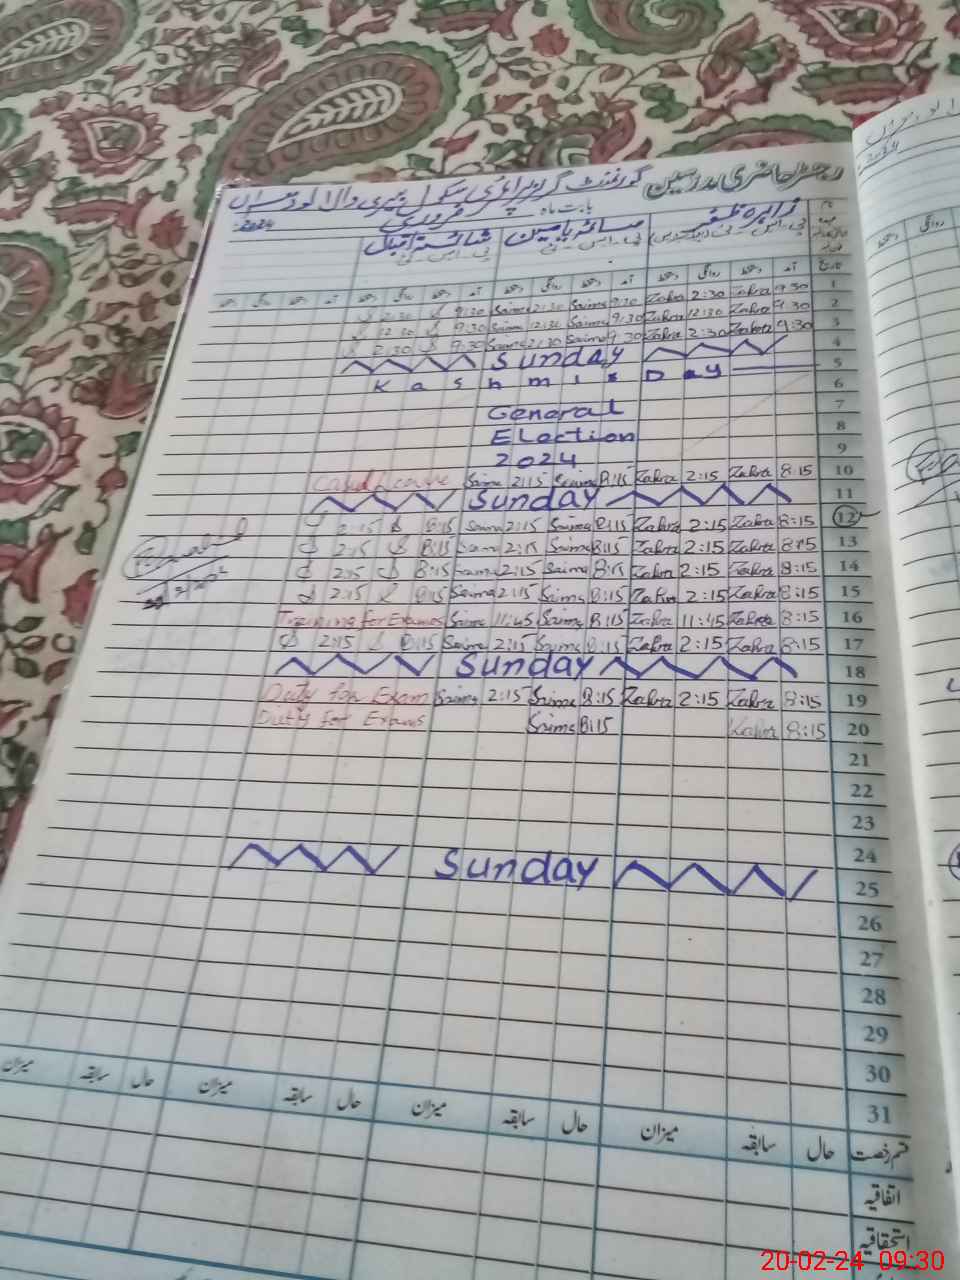 رجسٹر حاضری مدرسین گورنمنٹ گرلز پرائمری سکول بیری والا لودھراں
بابت ماہ فروری 2024
زاہرہ ظفر صائمہ یاسمین شائستہ اقبال
پی۔ایس۔ٹی پی۔ایس۔ٹی
تاریخ آمد دستخط روانگی دستخط آمد دستخط روانگی دستخط آمد دستخط روانگی دستخط آمد دستخط روانگی دستخط
2:30 9:30 Saima 2:30 Saima 9:30 Zahra 2:30 Zahra 9:30 1
12:30 9:30 Saima 12:30 Saima 9:30 Zahra 12:30 Zahra 9:30 2
2:30 9:30 Saima 2:30 Saima 9:30 Zahra 2:30 Zahra 9:30 3
Sunday 4
Kashmir Day 5
6
General 7
Election 8
2024 9
Casual Leave Saima 2:15 Saima 8:15 Zahra 2:15 Zahra 8:15 10
Sunday 11
2:15 8:15 Saima 2:15 Saima 8:15 Zahra 2:15 Zahra 8:15 12
2:15 8:15 Saima 2:15 Saima 8:15 Zahra 2:15 Zahra 8:15 13
2:15 8:15 Saima 2:15 Saima 8:15 Zahra 2:15 Zahra 8:15 14
2:15 8:15 Saima 2:15 Saima 8:15 Zahra 2:15 Zahra 8:15 15
Training for Exames Saima 11:45 Saima 8:15 Zahra 11:45 Zahra 8:15 16
2:15 8:15 Saima 2:15 Saima 8:15 Zahra 2:15 Zahra 8:15 17
Sunday 18
Duty for Exam Saima 2:15 Saima 8:15 Zahra 2:15 Zahra 8:15 19
Duty for Exams Saima 8:15 Zahra 8:15 20
21
22
23
24
Sunday 25
26
27
28
29
30
31
قسم رخصت حال سابقہ میزان حال سابقہ میزان حال سابقہ میزان حال سابقہ میزان
اتفاقیہ
استحقاقیہ
20-02-24 09:30